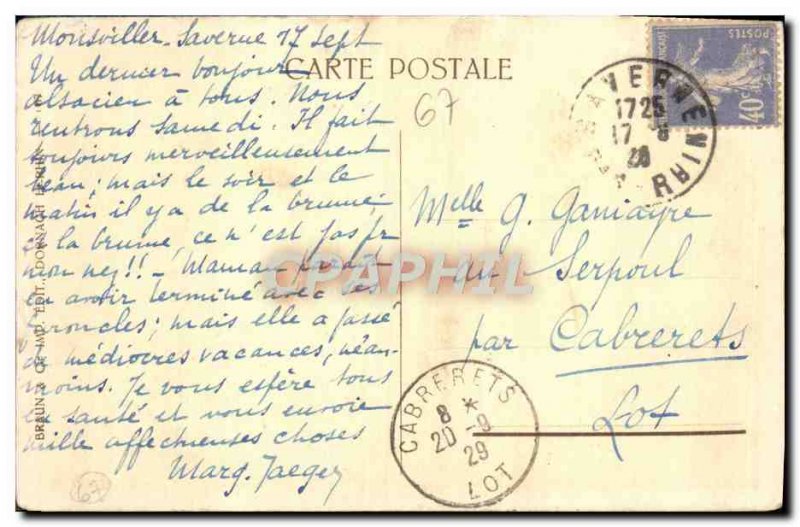 Monsviller-Saverne 17 Sept
Un dernier bonjour
alsacien à tous. Nous
rentrons samedi. Il fait
toujours merveilleusement
beau; mais le soir et le
matin il y a de la brume;
et la brume, ce n'est pas pr
mon nez!! - Maman paraît
en avoir terminé avec les
furoncles; mais elle a passé
de médiocres vacances, néan-
moins. Je vous espère tous
en santé et vous envoie
mille affectueuses choses
Marg. Jaeger
CARTE POSTALE
67
Melle G. Ganiayre
au Serpoul
par Cabrerets
Lot
SAVERNE
1725
17 9
BAS-RHIN
POSTES
40c
CABRERETS
8 *
20 -9
29
LOT
BRAUN & Cie IMP. EDIT.
67
CPAPHIL.COM